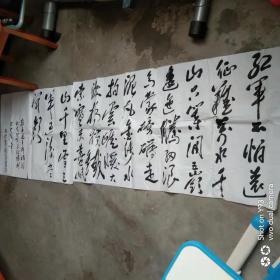 红军不怕远
征难万水千
山只等闲五岭
逶迤腾细浪
乌蒙磅礴走
泥丸金沙水
拍云崖暖大
渡桥横铁
索寒更喜岷
山千里雪三
军过后尽
开颜
SHOT ON Y93
vivo dual camera